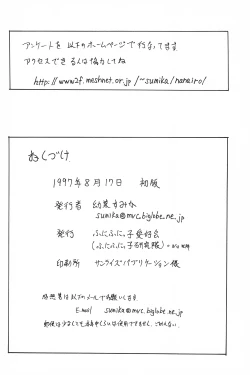 アンケートを以下のホームページで行なってます。
アクセスできる人は協力してね
http://www2f.meshnet.or.jp/~sumika/nanairo/
おくづけ
1997年8月17日 初版
発行者 幼菜すみか
sumika@mvc.biglobe.ne.jp
発行 ふにふに。子愛好会
(ふにふに。子研究隊)
印刷所 サンライズパブリケーション様
感想等は以下のメールでお願いします。
E-mail sumika@mvc.biglobe.ne.jp
郵便は少なくとも
使用できません。ごめんなさい。